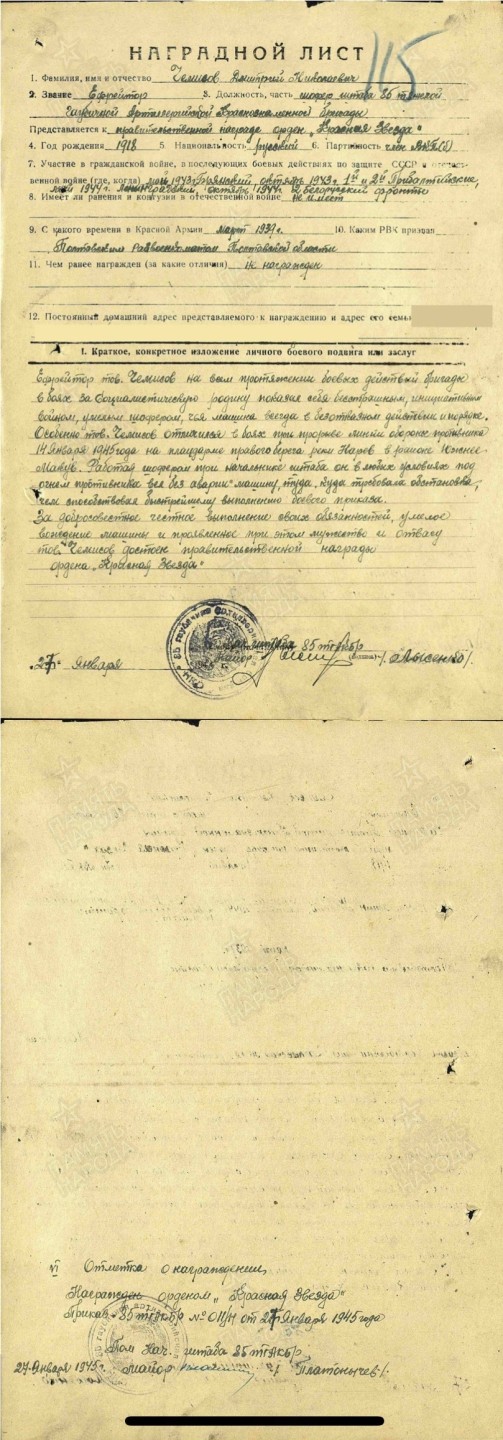 115
НАГРАДНОЙ ЛИСТ
1. Фамилия, имя и отчество Челисов Дмитрий Николаевич
2. Звание Ефрейтор 3. Должность, часть шофер штаба 85 тяжелой
гаубичной Артиллерийской Краснознаменной бригады
Представляется к правительственной награде орден „Красная Звезда"
4. Год рождения 1918 5. Национальность русский 6. Партийность член ВКП(б)
7. Участие в гражданской войне, в последующих боевых действиях по защите СССР и отечест-
венной войне (где, когда) май 1943г Брянский, октябрь 1943г. 1й и 2й Прибалтийские,
май 1944г. Ленинградский октябрь 1944г. 2 Белорусский фронты
8. Имеет ли ранения и контузии в отечественной войне не имеет
9. С какого времени в Красной Армии март 1939г. 10. Каким РВК призван
Ростовским Райвоенкоматом Ростовской области
11. Чем ранее награжден (за какие отличия) Не награжден
12. Постоянный домашний адрес представляемого к награждению и адрес его семьи
1. Краткое, конкретное изложение личного боевого подвига или заслуг
Ефрейтор тов. Челисов на всем протяжении боевых действий бригады
в боях за Социалистическую родину показал себя бесстрашным, инициативным
воином, умелым шофером, чья машина всегда в безотказном действии и порядке.
Особенно тов. Челисов отличился в боях при прорыве линии обороны противника
14 Января 1945 года на плацдарме правого берега реки Нарев в районе Южнее
Макув. Работая шофером при начальнике штаба он в любых условиях под
огнем противника вел без аварии машину, туда, куда требовала обстановка,
чем способствовал быстрейшему выполнению боевого приказа.
За добросовестное честное выполнение своих обязанностей, умелое
вождение машины и проявленное при этом мужество и отвагу
тов. Челисов достоин правительственной награды
ордена „Красная Звезда"
штаба 85 тгАкбр
„27" января майор /Лысенко/.
VI Отметка о награждении,
Награжден орденом „Красная Звезда"
Приказ 85 тгАкбр № 011/Н от 27 Января 1945 года
Пом Нач. штаба 85 тгАкбр
27 Января 1945г. Майор /Платонычев/.
ПАМЯТЬ НАРОДА